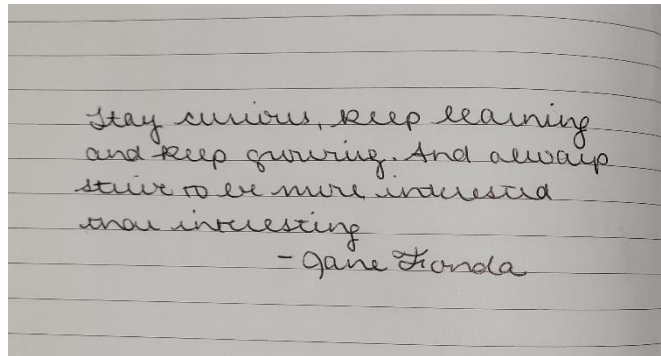 Stay curious, keep learning
and keep growing. And always
strive to be more interested
than interesting
- Jane Fonda